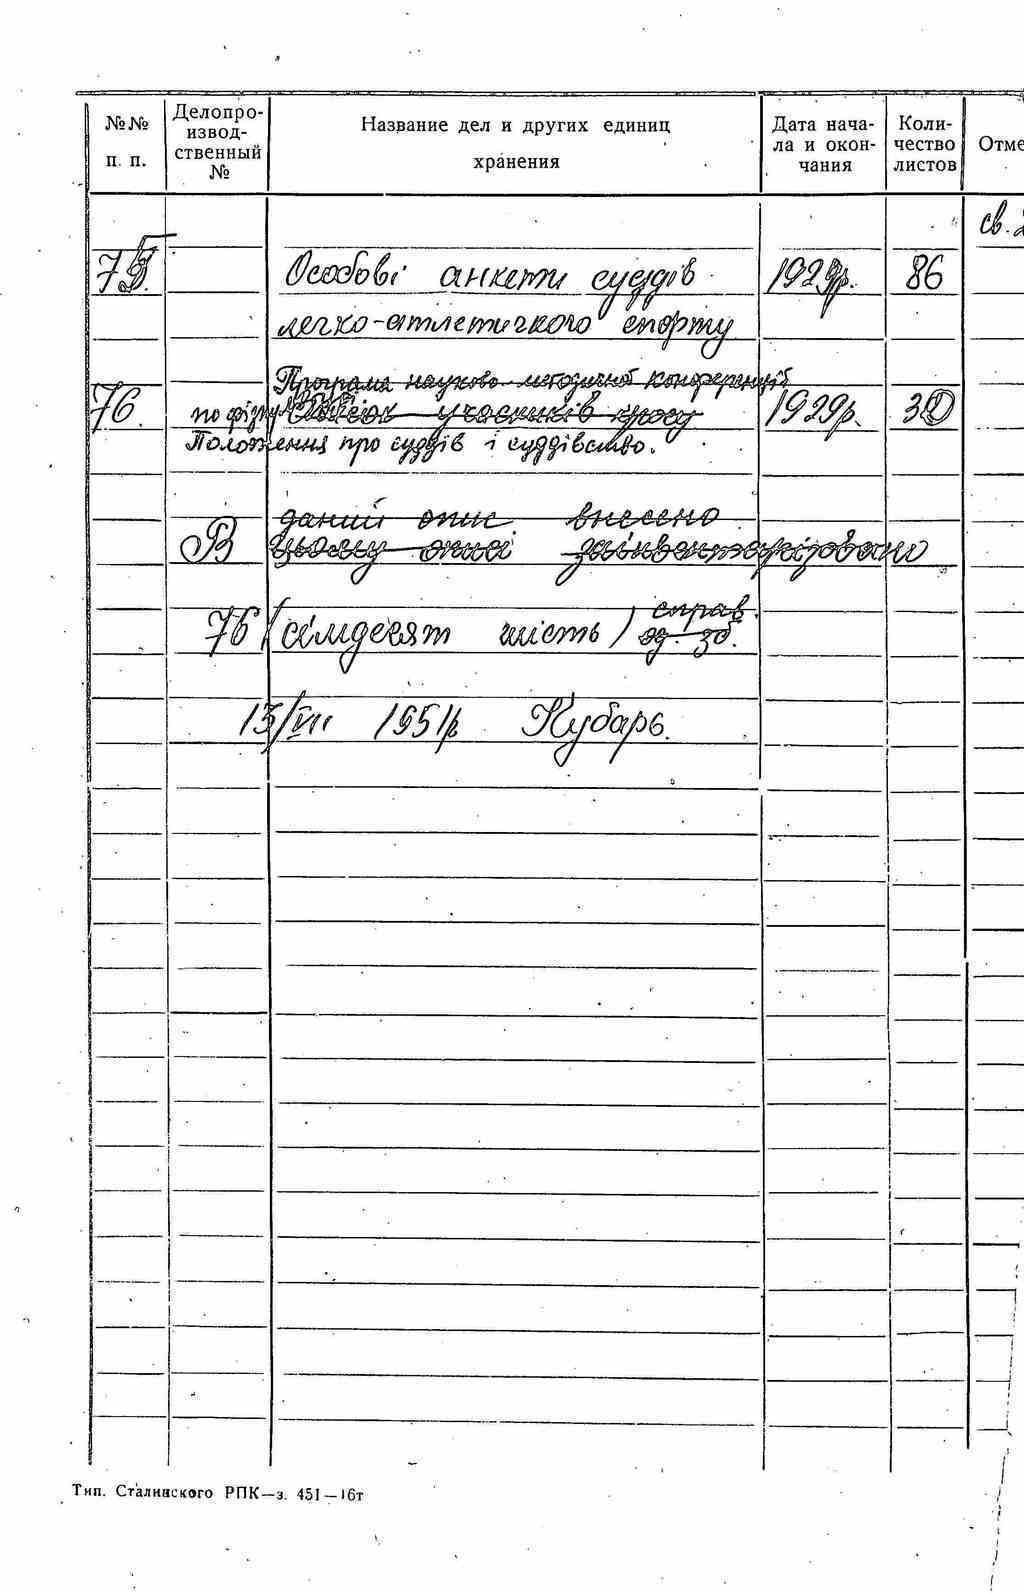 №№ п. п.
Делопро-
извод-
ственный
№
Название дел и других единиц
хранения
Дата нача-
ла и окон-
чания
Коли-
чество
листов
Отме
св.
75. Особові анкети суддів 1929р. 86
легко-атлетичкого спорту
Програма науково-методичної конференції
76. по фізкультурі учасників кросу 1929р. 30
Положення про суддів і суддівство.
даний опис внесено
В цьому описі заінвентаризовано
76 (сімдесят шість) справ
од. зб.
13/VII 1951р Кубарь.
Тип. Сталинского РПК—з. 451—16т